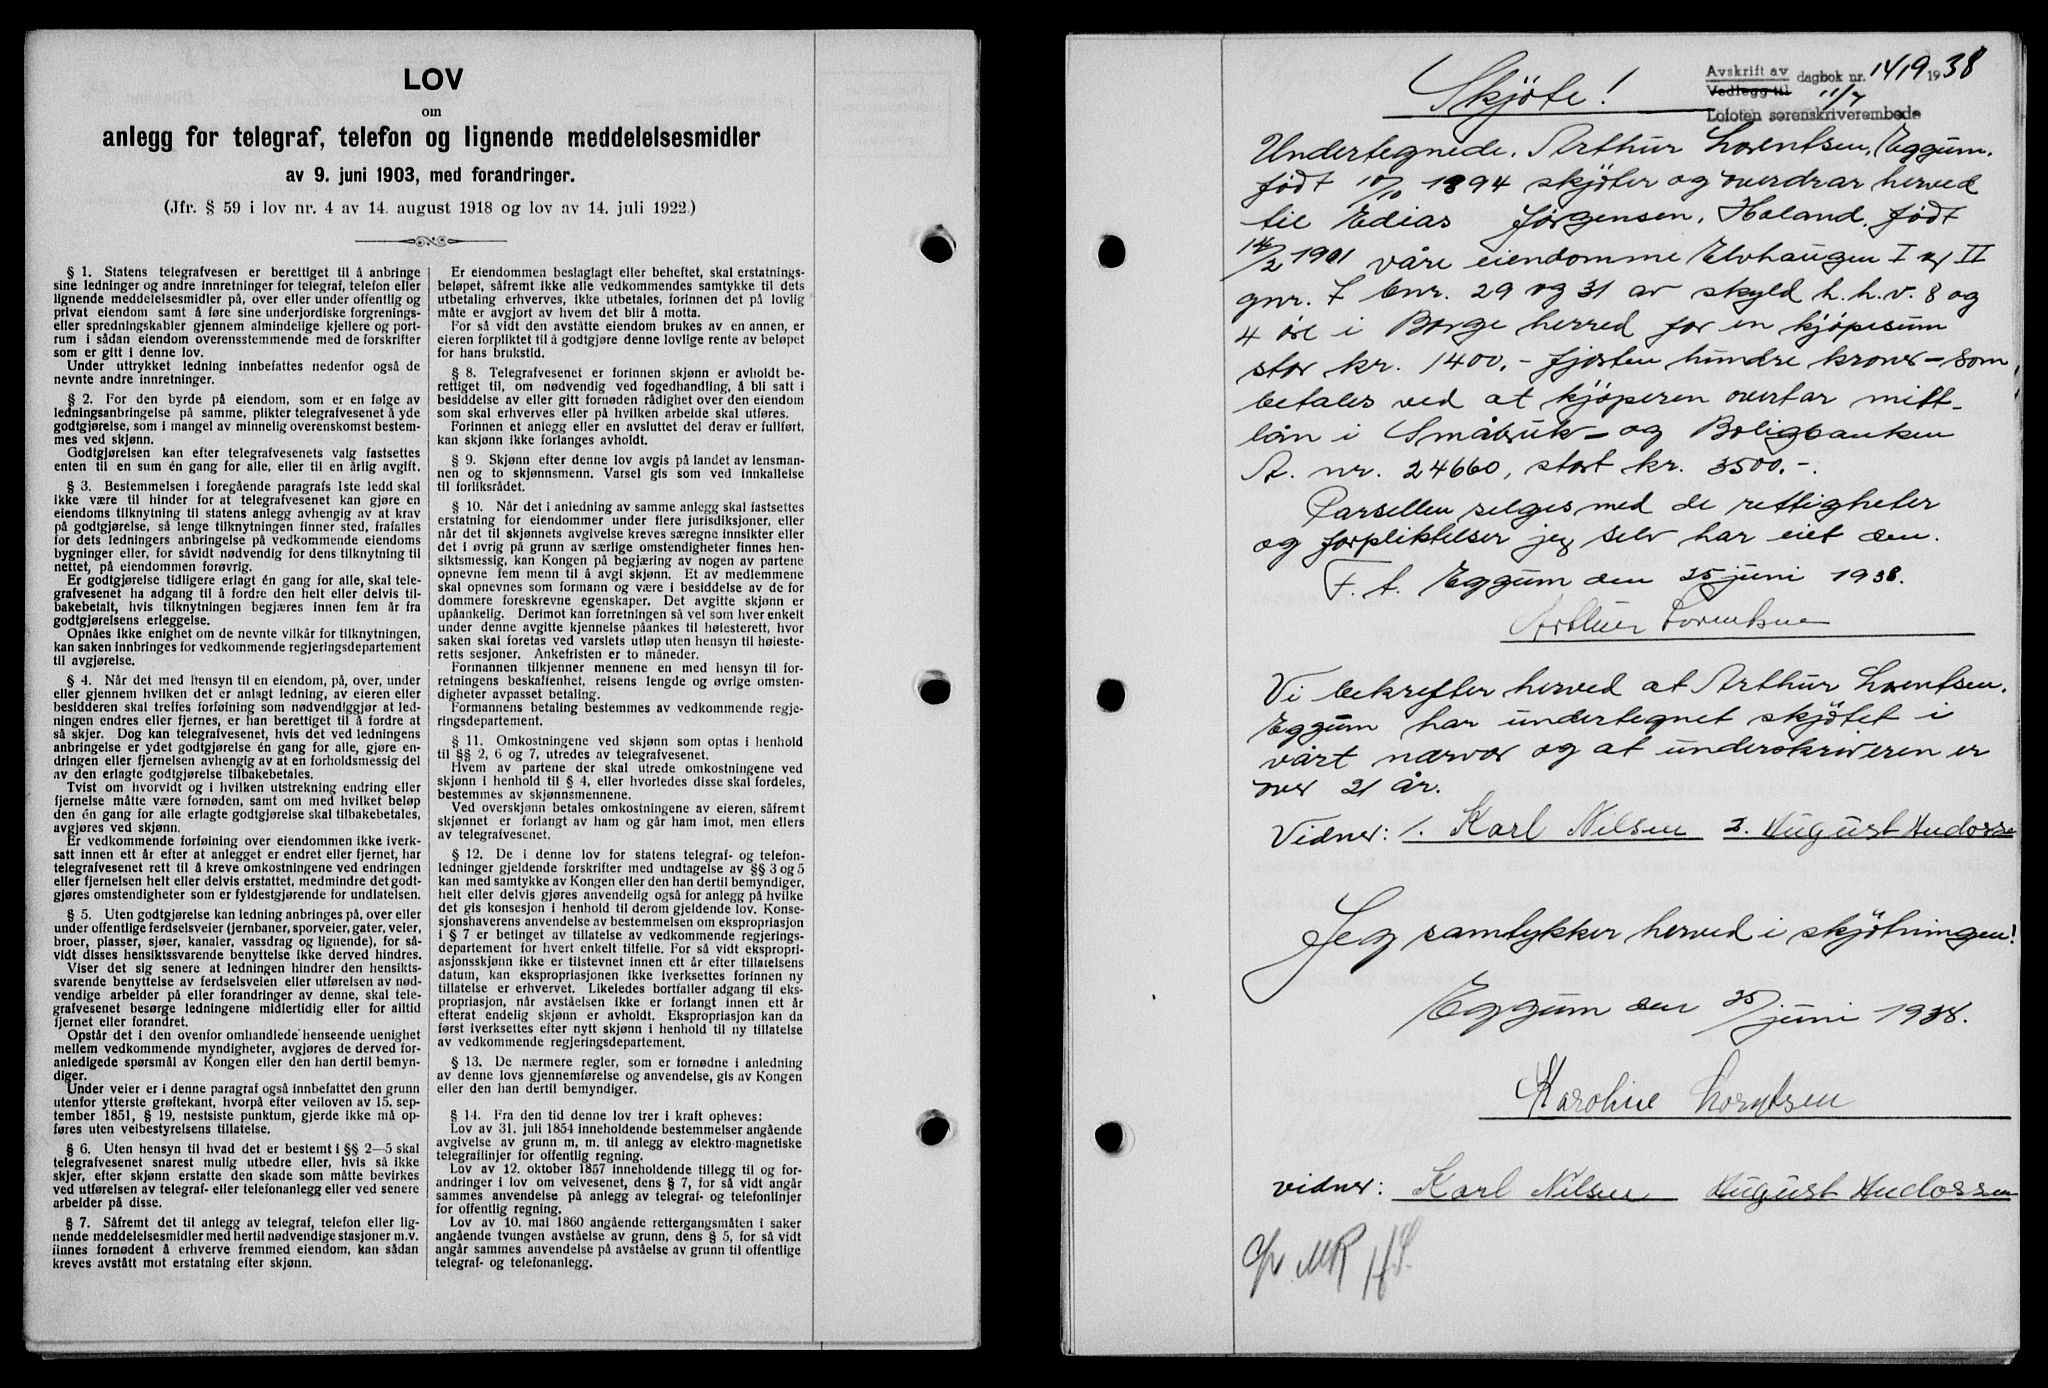 LOV
om
anlegg for telegraf, telefon og lignende meddelelsesmidler
av 9. juni 1903, med forandringer.
(Jfr. § 59 i lov nr. 4 av 14. august 1918 og lov av 14. juli 1922.)
§ 1. Statens telegrafvesen er berettiget til å anbringe
sine ledninger og andre innretninger for telegraf, telefon eller
lignende meddelelsesmidler på, over eller under offentlig og
privat eiendom samt å føre sine underjordiske forgrenings-
eller spredningskabler gjennem almindelige kjellere og port-
rum i sådan eiendom overensstemmende med de forskrifter
som er gitt i denne lov.
Under uttrykket ledning innbefattes nedenfor også de
nevnte andre innretninger.
§ 2. For den byrde på eiendom, som er en følge av
ledningsanbringelse på samme, plikter telegrafvesenet å yde
godtgjørelse, som i mangel av minnelig overenskomst bestem-
mes ved skjønn.
Godtgjørelsen kan efter telegrafvesenets valg fastsettes
enten til en sum én gang for alle, eller til en årlig avgift.
§ 3. Bestemmelsen i foregående paragrafs 1ste ledd skal
ikke være til hinder for at telegrafvesenet kan gjøre en
eiendoms tilknytning til statens anlegg avhengig av at krav
på godtgjørelse, så lenge tilknytningen finner sted, frafalles
for dets ledningers anbringelse på vedkommende eiendoms
bygninger eller, for såvidt nødvendig for dens tilknytning til
nettet, på eiendommen forøvrig.
Er godtgjørelse tidligere erlagt én gang for alle, skal tele-
grafvesenet ha adgang til å fordre den helt eller delvis til-
bakebetalt, hvis tilknytningen begjæres innen fem år fra
godtgjørelsens erleggelse.
Opnåes ikke enighet om de nevnte vilkår for tilknytningen,
kan saken innbringes for vedkommende regjeringsdepartement
til avgjørelse.
§ 4. Når det med hensyn til en eiendom, på, over, under
eller gjennem hvilken det er anlagt ledning, av eieren eller
besidderen skal treffes forføining som nødvendiggjør at led-
ningen endres eller fjernes, er han berettiget til å fordre at
så skjer. Dog kan telegrafvesenet, hvis det ved ledningens
anbringelse er ydet godtgjørelse én gang for alle, gjøre en-
dringen eller fjernelsen avhengig av at en forholdsmessig del
av den erlagte godtgjørelse tilbakebetales.
Tvist om hvorvidt og i hvilken utstrekning endring eller
fjernelse måtte være fornøden, samt om med hvilket beløp
den én gang for alle erlagte godtgjørelse skal tilbakebetales,
avgjøres ved skjønn.
Er vedkommende forføining over eiendommen ikke iverk-
satt innen ett år efter at anlegget er endret eller fjernet, har
telegrafvesenet rett til å kreve omkostningene ved endringen
eller fjernelsen helt eller delvis erstattet, medmindre det godt-
gjøres omstendigheter som er fyldestgjørende for undlatelsen.
§ 5. Uten godtgjørelse kan ledning anbringes på, over eller
under offentlige ferdselsveier (jernbaner, sporveier, gater, veier,
broer, plasser, sjøer, kanaler, vassdrag og lignende), for så-
vidt disses hensiktssvarende benyttelse ikke derved hindres.
Viser det sig senere at ledningen hindrer den hensikts-
svarende benyttelse av ferdselsveien eller utførelsen av nød-
vendige arbeider på eller forandringer av denne, skal tele-
grafvesenet besørge ledningene midlertidig eller for alltid
fjernet eller forandret.
Opstår det i den ovenfor omhandlede henseende uenighet
mellem vedkommende myndigheter, avgjøres de derved for-
anledigede spørsmål av Kongen eller den han dertil bemyn-
diger.
Under veier er i denne paragraf også innbefattet den grunn
utenfor ytterste grøftekant, hvorpå efter veiloven av 15. sep-
tember 1851, § 19, nestsiste punktum, gjerde ikke må op-
føres uten veibestyrelsens tillatelse.
§ 6. Uten hensyn til hvad det er bestemt i §§ 2—5 skal
telegrafvesenet snarest mulig utbedre eller, hvis så ikke
skjer, efter skjønn erstatte den skade som måtte bevirkes
ved utførelsen av telegraf- eller telefonanlegg eller ved senere
arbeider på disse.
§ 7. Såfremt det til anlegg av telegraf, telefon eller lig-
nende meddelelsesmidler med hertil nødvendige stasjoner m.v.
finnes fornødent å erhverve fremmed eiendom, kan sådan
kreves avstått mot erstatning efter skjønn.
Er eiendommen beslaglagt eller beheftet, skal erstatnings-
beløpet, såfremt ikke alle vedkommendes samtykke til dets
utbetaling erhverves, ikke utbetales, forinnen det på lovlig
måte er avgjort av hvem det blir å motta.
For så vidt den avståtte eiendom brukes av en annen, er
eieren forpliktet til å godtgjøre denne lovlige rente av beløpet
for hans brukstid.
§ 8. Telegrafvesenet er forinnen skjønn er avholdt be-
rettiget til, om nødvendig ved fogedhandling, å bli satt i
besiddelse av eller gitt fornøden rådighet over den eiendom
som skal erhverves eller på hvilken arbeide skal utføres.
Forinnen et anlegg eller en avsluttet del derav er fullført,
kan skjønn ikke forlanges avholdt.
§ 9. Skjønn efter denne lov avgis på landet av lensman-
nen og to skjønnsmenn. Varsel gis som ved innkallelse
til forliksrådet.
§ 10. Når det i anledning av samme anlegg skal fastsettes
erstatning for eiendommer under flere jurisdiksjoner, eller
når det til skjønnets avgivelse kreves særegne innsikter eller
det i øvrig på grunn av særlige omstendigheter finnes hen-
siktsmessig, kan Kongen på begjæring av nogen av partene
opnevne fem menn til å avgi skjønn. Et av medlemmene
skal opnevnes som formann og være i besiddelse av de for
dommere foreskrevne egenskaper. Det avgitte skjønn er
upåankelig. Derimot kan forretningen så vel som hver enkelt
under denne avgitte kjennelse påankes til høiesterett, hvor
saken skal foretas ved varslets utløp uten hensyn til høieste-
retts sesjoner. Ankefristen er to måneder.
Formannen tilkjenner mennene en med hensyn til for-
retningens beskaffenhet, reisens lengde og øvrige omsten-
digheter avpasset betaling.
Formannens betaling bestemmes av vedkommende regje-
ringsdepartement.
§ 11. Omkostningene ved skjønn som optas i henhold
til §§ 2, 6 og 7, utredes av telegrafvesenet.
Hvem av partene der skal utrede omkostningene ved
skjønn i henhold til § 4, eller hvorledes disse skal fordeles,
bestemmes av skjønnsmennene.
Ved overskjønn betales omkostningene av eieren, såfremt
skjønnet er forlangt av ham og går ham imot, men ellers
av telegrafvesenet.
§ 12. De i denne lov for statens telegraf- og telefon-
ledninger gjeldende forskrifter med undtagelse av §§ 3 og 5
kan med samtykke av Kongen eller den han dertil bemyndiger,
helt eller delvis gjøres anvendelig også for anlegg på hvilke
det gis konsesjon i henhold til derom gjeldende lov. Konse-
sjonshaverens anvendelse av bestemmelsen om ekspropriasjon
i § 7 er betinget av tillatelse av vedkommende regjerings-
departement for hvert enkelt tilfelle. For så vidt ekspropri-
asjonsskjønn ikke er tilstevnet innen ett år efter tillatelsens
datum, kan ekspropriasjonen ikke iverksettes forinnen ny
tillatelse er erhvervet. Likeledes bortfaller adgang til eks-
propriasjon, når avståelsen ikke er forlangt innen ett år
efterat endelig skjønn er avholdt. Ekspropriasjon kan da
først iverksettes efter nytt skjønn i henhold til ny tillatelse
av vedkommende regjeringsdepartement.
§ 13. De nærmere regler, som er fornødne i anledning
av denne lovs gjennemførelse og anvendelse, gis av Kongen
eller den han dertil bemyndiger.
§ 14. Fra den tid denne lov trer i kraft opheves:
Lov av 31. juli 1854 inneholdende bestemmelser angående
avgivelse av grunn m. m. til anlegg av elektro-magnetiske
telegraflinjer for offentlig regning.
Lov av 12. oktober 1857 inneholdende tillegg til og for-
andringer i lov om veivesenet, dens § 7, for så vidt angår
sammes anvendelse på anlegg av telegraf- og telefonlinjer
for offentlig regning.
Lov av 10. mai 1860 angående rettergangsmåten i saker
angående tvungen avståelse av grunn, dens § 5, for så vidt
angår sammes anvendelse på avståelse av grunn til offentlige
telegraf- og telefonanlegg.
Skjøte!
Avskrift av
Vedlegg til
dagbok nr. 1419 1938
11/7
Lofoten sorenskriverembede
Undertegnede. Arthur Lorentsen, Eggum.
født 10/10 1894 skjøter og overdrar herved
til Edias Jørgensen, Holand, født
14/2 1901 våre eiendomme Elvhaugen I og II
gnr. 7 bnr. 29 og 31 av skyld h.h.v. 8 og
4 øre i Borge herred for en kjøpesum
stor kr. 1400.- fjorten hundre kroner - som
betales ved at kjøperen overtar mitt
lån i Småbruk- og Boligbanken
A. nr. 24660, stort kr. 3500.-.
Parsellen selges med de rettigheter
og forpliktelser jeg selv har eiet den.
F. t. Eggum den 25 juni 1938.
Arthur Lorentsen
Vi bekrefter herved at Arthur Lorentsen.
Eggum har undertegnet skjøtet i
vårt nærvær og at underskriveren er
over 21 år.
Vidner: 1. Karl Nilsen 2. August Andossen
Jeg samtykker herved i skjøtningen!
Eggum den 25/juni 1938.
Karoline Lorentsen
vidner: Karl Nilsen August Andossen